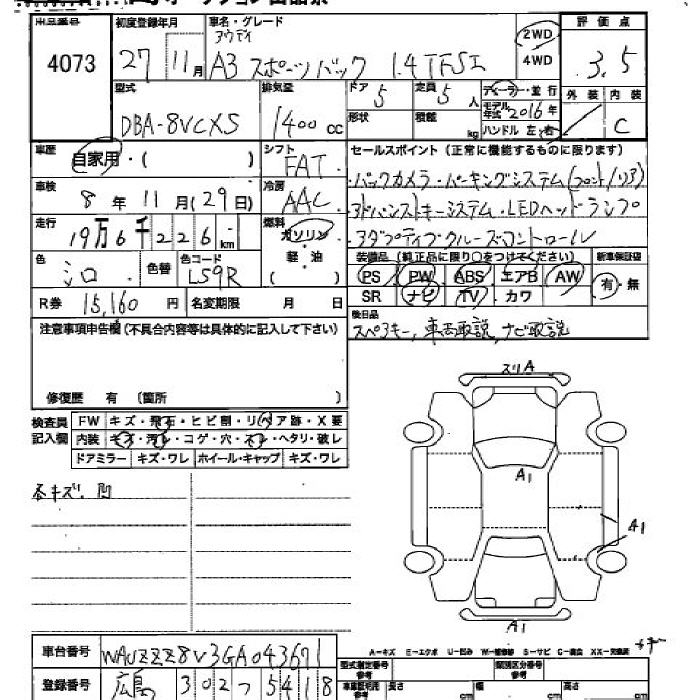 出品番号 初度登録年月 車名・グレード 評価点
アウディ 2WD
4073 27 11月 A3 スポーツバック 1.4 TFSI 4WD 3.5
型式 排気量 ドア 5 定員 5 人 ディーラー・並行 外装 内装
DBA-8VCXS 1400 cc 形状 積載 kg モデル年式 2016年 ハンドル 左・右 C
車歴 自家用・( ) シフト FAT セールスポイント (正常に機能するものに限ります)
車検 8 年 11 月(29日) 冷房 AAC ・バックカメラ・パーキングシステム(フロント/リア)
走行 19万6千226km 燃料 ガソリン ・アドバンストキーシステム・LEDヘッドランプ
軽・油 ・アダプティブクルーズコントロール
色 シロ 色替 色コード LS9R ( ) 装備品 (純正品に限り○をつけてください) 新車保証書
PS PW ABS エアB AW 有・無
R券 15,160 円 名変期限 月 日 SR ナビ TV カワ
注意事項申告欄 (不具合内容等は具体的に記入して下さい) 後日品
スペアキー, 車両取説, ナビ取説
修復歴 有 (箇所 )
検査員記入欄 FW キズ・飛石・ヒビ割・リペア跡・X要
内装 キズ・汚レ・コゲ・穴・スレ・ヘタリ・破レ
ドアミラー キズ・ワレ ホイール・キャップ キズ・ワレ
スリA
A1
各キズ. 凹
A1
A1
A-キズ E-エクボ U-凹み W-補修跡 S-サビ C-腐食 XX-交換済
車台番号 WAUZZZ8V3GA043671 型式指定番号 参考 類別区分番号 参考
登録番号 広島 302 つ 5418 参考 長さ cm 幅 cm 高さ cm